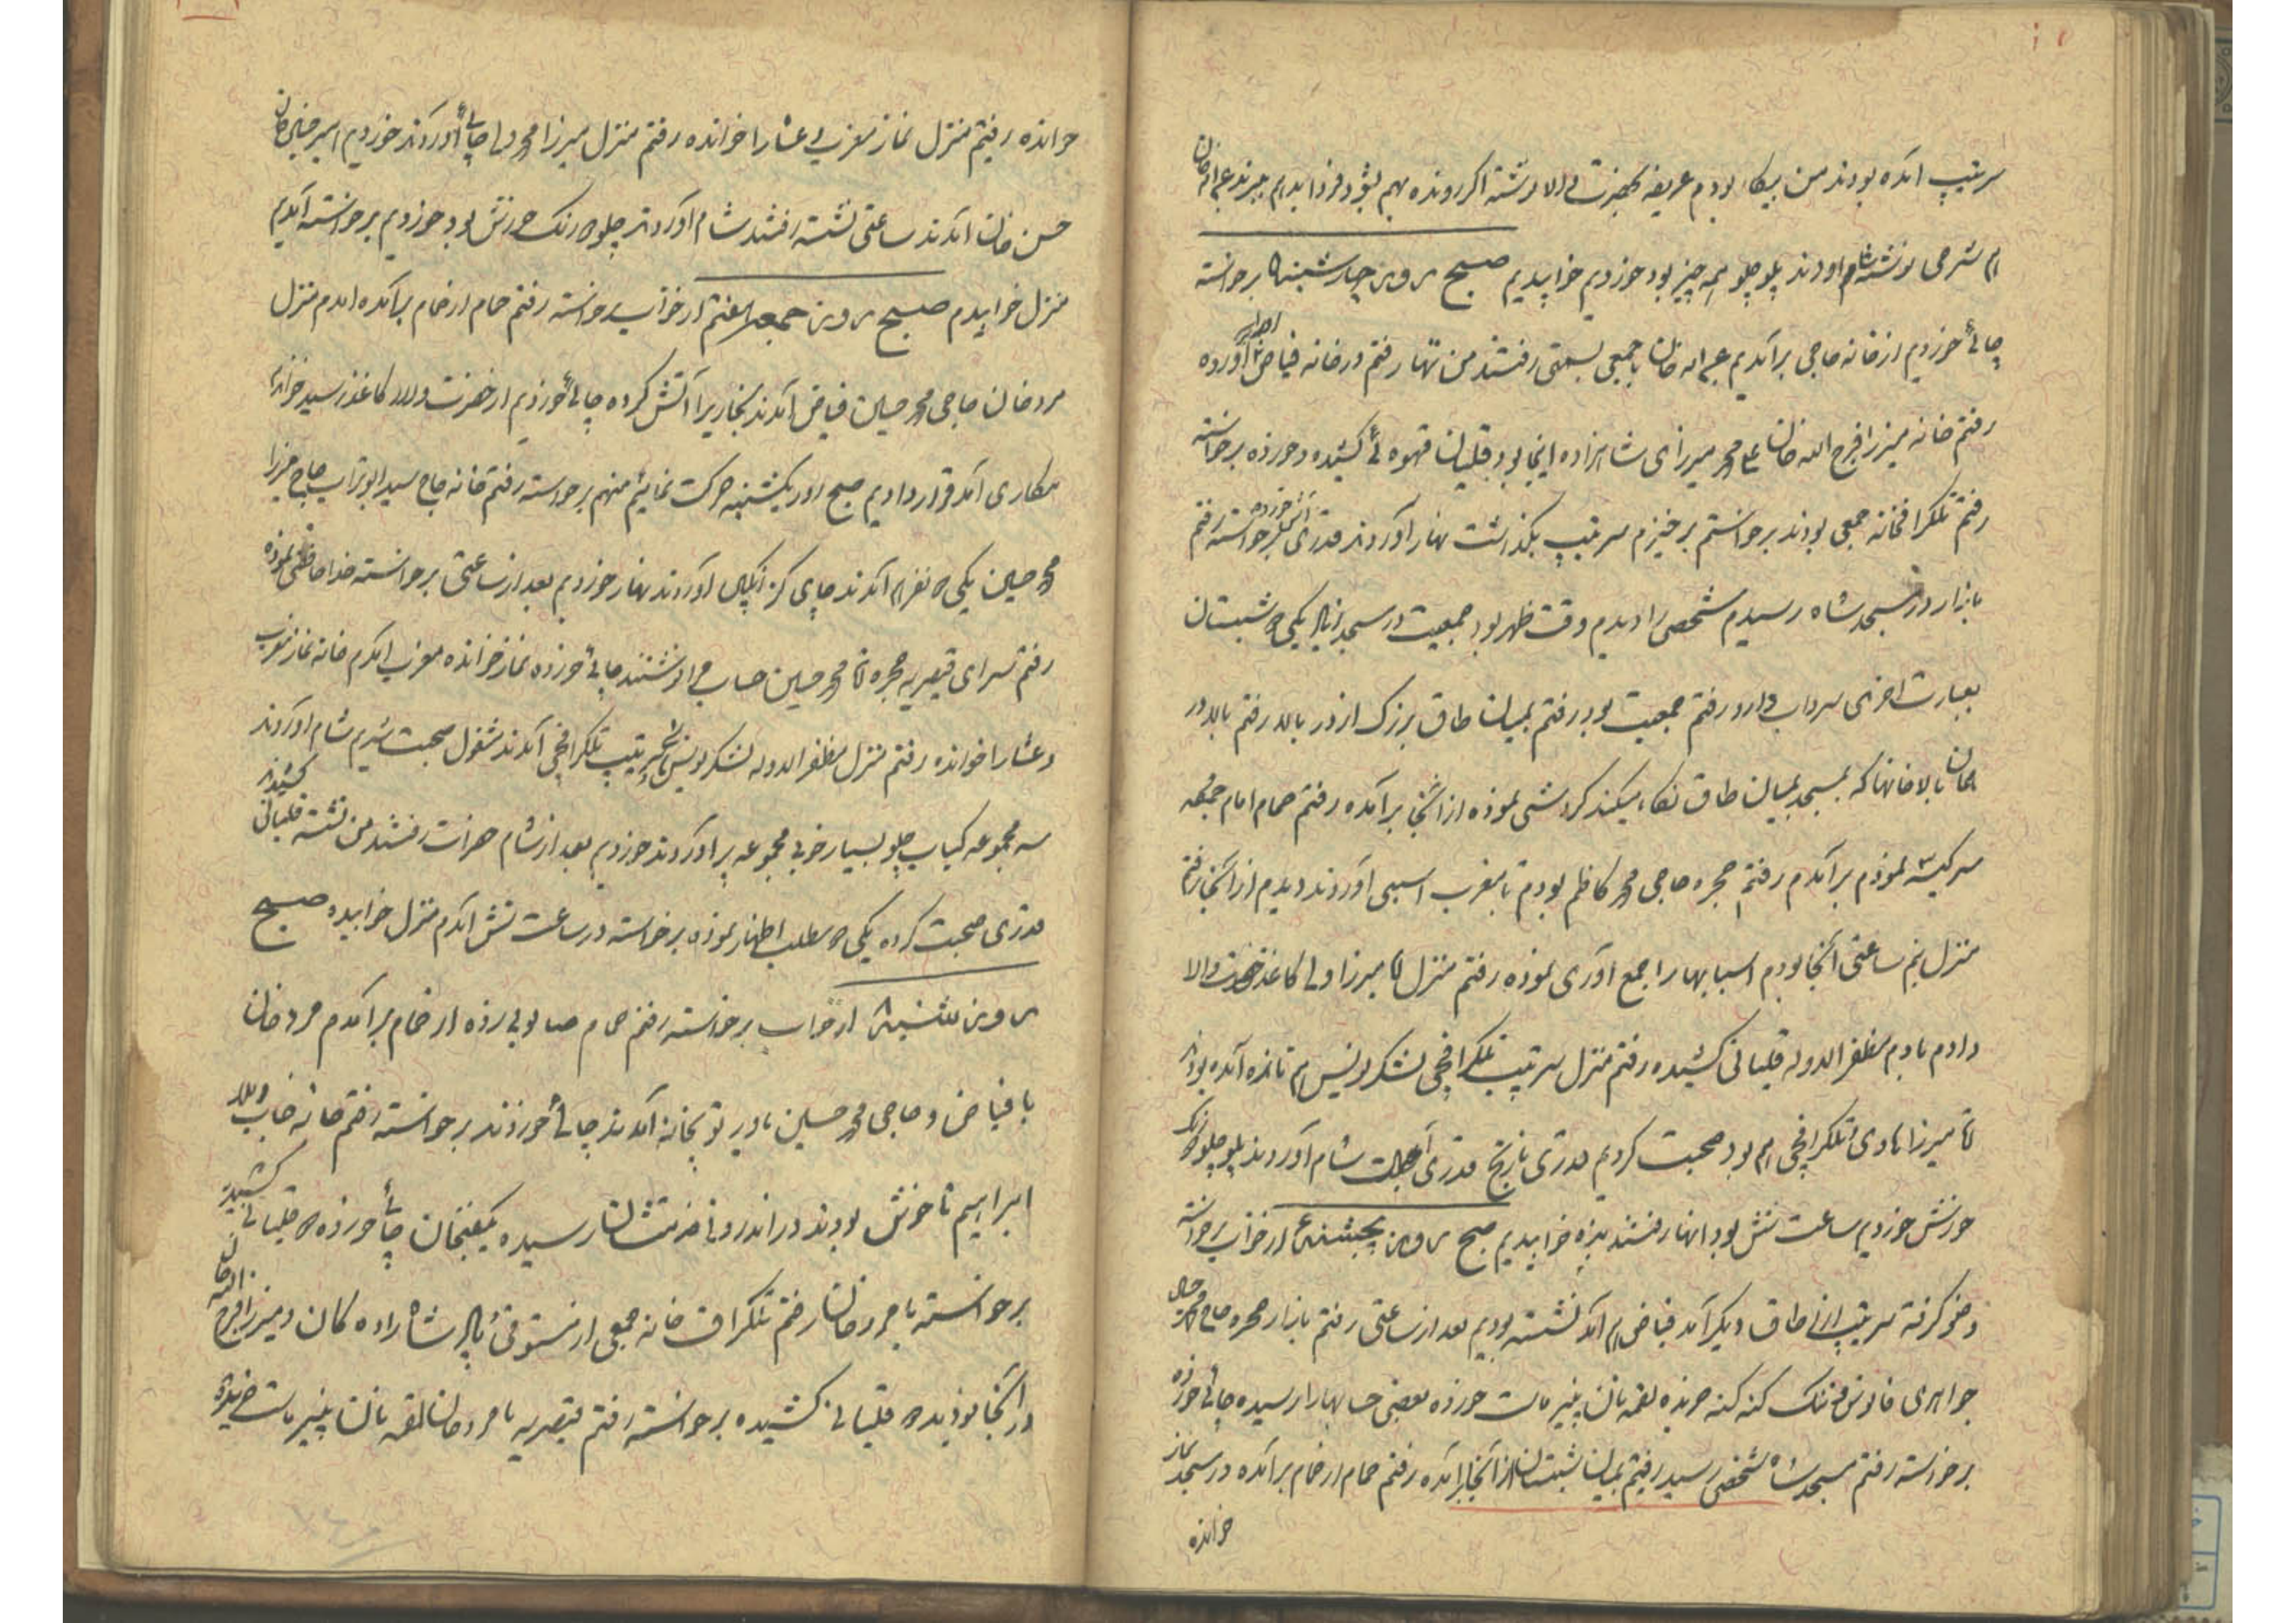 سرتیپ آمده بودند من بیکار بودم عریضه بحضرت والا نوشته اگر رونده بهم بشود فردا بدهم ببرند
هم شرحی نوشته شام آوردند پلو چلو همه چیز بود خوردیم خوابیدیم صبح روز چهارشنبه ۵ برخواسته
چائی خوردیم از خانه حاجی برآمدیم خان با جمعی بسمتی رفتند من تنها رفتم در خانه فیاض آورده
رفتم خانه میرزا فرج الله خان علی محمد میرزای شاهزاده اینجا بود قلیان قهوه کشیده و خورده برخواسته
رفتم تلگرافخانه جمعی بودند برخواستم برخیزم سرتیپ نگذاشت نهار آوردند قدری برخواسته رفتم
بازار در مسجد شاه رسیدم شخصی را دیدم وقت ظهر بود جمعیت در مسجد یکی دو شبستان
بعبارت اخری سرداب دارد رفتم جمعیت بود رفتم بمیان طاق بزرگ از در بالا رفتم بالا در
همان بالاخانها که بمسجد بمیان طاق نگاه میکند گردشی نموده از آنجا برآمده رفتم حمام امام جمعه
سر کیسه نمودم برآمدم رفتم حجره حاجی محمد کاظم بودم تا مغرب اسبی آوردند دیدم از آنجا رفتم
منزل ساعتی آنجا بودم اسبابها را جمع آوری نموده رفتم منزل آقا میرزا ولی کاغذ حضرت والا
دادم بادم مظفر الدوله قلیانی کشیده رفتم منزل سرتیپ تلگرافچی لشکر نویس هم تازه آمده بود
آقا میرزا هادی تلگرافچی هم بود صحبت کردیم قدری نارنج قدری شام آوردند پلو چلو
خورش خوردیم ساعت شش بود آنها رفتند بنده خوابیدیم صبح روز پنجشنبه ۶ از خواب برخواسته
وضو گرفته سرتیپ از اطاق دیگر آمد فیاض هم آمد نشسته بودیم بعد از ساعتی رفتم بازار حجره حاجی محمد حسین
جواهری فانوس فشنگ کنه کنه خریده لقمه نان پنیر ماست خورده بعضی حسابها را رسیده چائی خورده
برخواسته رفتم مسجد شاه شخصی رسید رفتیم بمیان شبستان از آنجا برآمده رفتم حمام از حمام برآمده در مسجد نماز
خوانده
خوانده رفتیم منزل نماز مغرب و عشا را خوانده رفتم منزل میرزا محمد ولی چائی آوردند خوردیم امیر حسین خان
حسن خان آمدند ساعتی نشسته رفتند شام آوردند چلو دو رنگ خورش بود خوردیم برخواسته آمدیم
منزل خوابیدم صبح روز جمعه هفتم از خواب برخواسته رفتم حمام از حمام برآمده آمدم منزل
مرد خان حاجی محمد حسین فیاض آمدند بخاری را آتش کرده چائی خوردیم از حضرت والا کاغذ رسید خواندم
مکاری آمد قرار دادیم صبح روز یکشنبه حرکت نمائیم منهم برخواسته رفتم خانه حاج سید ابو تراب حاج میرزا
محمد حسین یکی دو نفر هم آمدند چای آوردند نهار خوردیم بعد از ساعتی برخواسته خدا حافظی نموده
رفتم سرای قیصریه حجره آقا محمد حسین حساب مرا نوشتند چائی خورده نماز خوانده مغرب آمدم خانه نماز مغرب
و عشا را خوانده رفتم منزل مظفر الدوله لشکر نویس سرتیپ تلگرافچی آمدند مشغول صحبت شدیم شام آوردند
سه مجموعه کباب چلو بسیار خوب مجموعه پر آوردند خوردیم بعد از شام حضرات رفتند من نشسته قلیانی کشیدم
قدری صحبت کرده یکی دو مطلب اظهار نموده برخواسته در ساعت شش آمدم منزل خوابیده صبح
روز شنبه ۸ از خواب برخواسته رفتم حمام صابونی زده از حمام برآمدم مرد خان
با فیاض و حاجی محمد حسین توپخانه آمدند چائی خوردند برخواسته رفتم خانه جناب
ابراهیم ناخوش بودند در اندرونی خدمتشان رسیده یکفنجان چائی خورده دو قلیانی کشیده
برخواسته با مرد خان رفتم تلگرافخانه جمعی از مستوفی شاهزاده کان و میرزا فرج الله خان
در آنجا بودند دو قلیانی کشیده برخواسته رفتم قیصریه با مرد خان لقمه نان پنیر ماست خریده